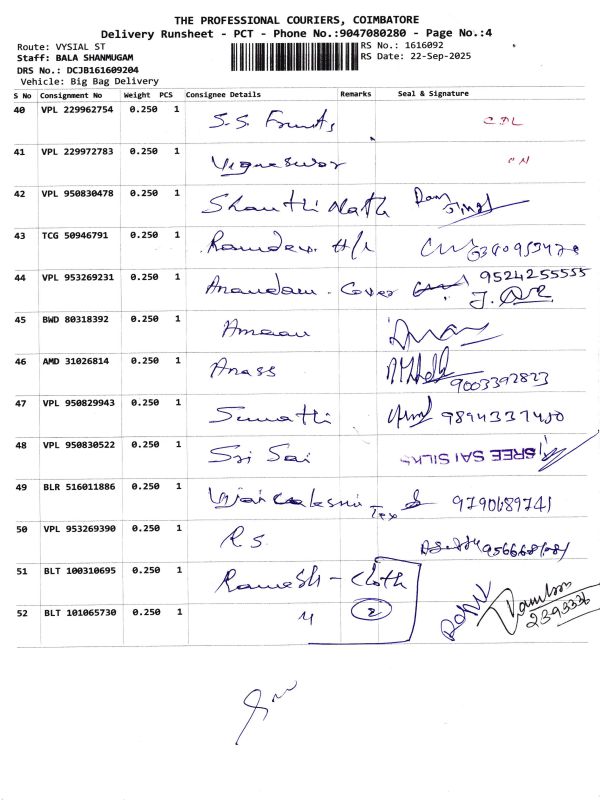 THE PROFESSIONAL COURIERS, COIMBATORE
Delivery Runsheet - PCT - Phone No.:9047080280 - Page No.:4
Route: VYSIAL ST RS No.: 1616092
Staff: BALA SHANMUGAM RS Date: 22-Sep-2025
DRS No.: DCJB161609204
Vehicle: Big Bag Delivery
S No Consignment No Weight PCS Consignee Details Remarks Seal & Signature
40 VPL 229962754 0.250 1 S.S. Fruits
41 VPL 229972783 0.250 1 Vigneswar
42 VPL 950830478 0.250 1 Shanthi Nath Ram Singh
43 TCG 50946791 0.250 1 Ramdev H/L
44 VPL 953269231 0.250 1 Anandam. Cover 9524255555
45 BWD 80318392 0.250 1 Amman
46 AMD 31026814 0.250 1 Anass 9003392823
47 VPL 950829943 0.250 1 Sumathi 9894337480
48 VPL 950830522 0.250 1 Sri Sai SREE SAI SILKS
49 BLR 516011886 0.250 1 Vijaicalakshmi Tex 9790689741
50 VPL 953269390 0.250 1 R S
51 BLT 100310695 0.250 1 Ramesh - Cloth
52 BLT 101065730 0.250 1 4 2 2393336